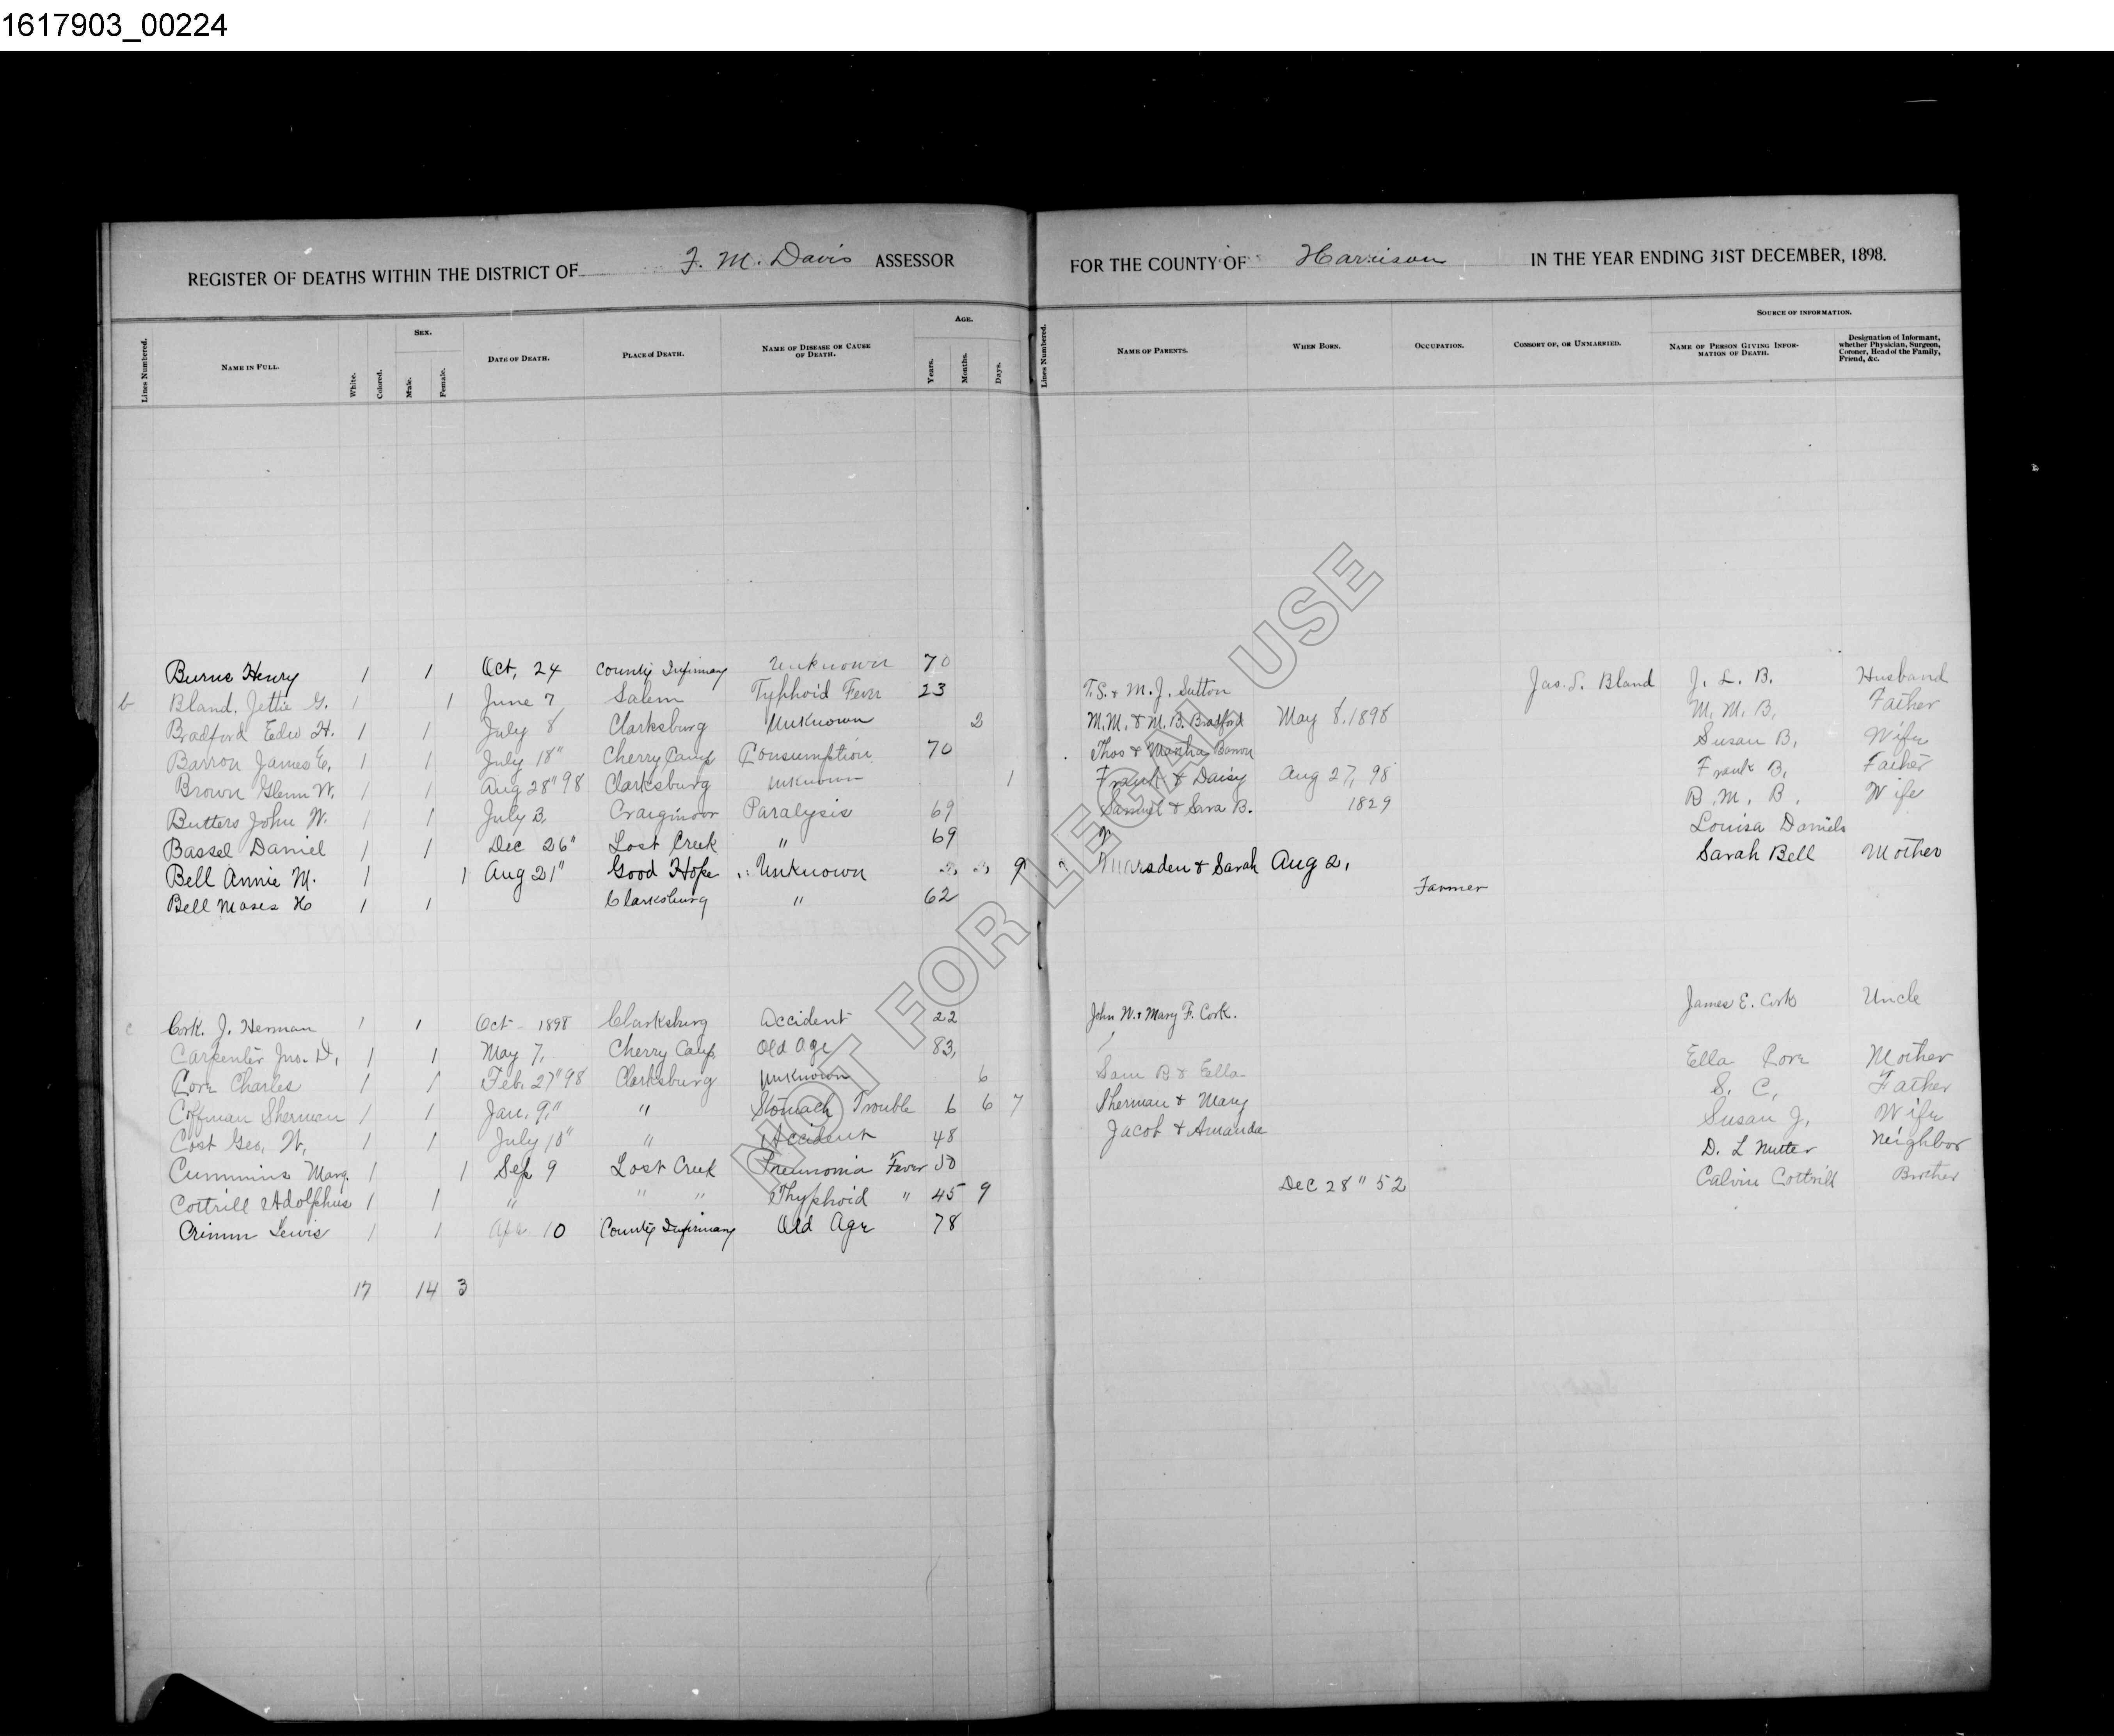 1617903_00224
REGISTER OF DEATHS WITHIN THE DISTRICT OF F. M. Davis ASSESSOR FOR THE COUNTY OF Harrison IN THE YEAR ENDING 31ST DECEMBER, 1898.
Lines Numbered. NAME IN FULL. White. Colored. SEX. Male. Female. DATE OF DEATH. PLACE of DEATH. NAME OF DISEASE OR CAUSE OF DEATH. AGE. Years. Months. Days. Lines Numbered. NAME OF PARENTS. WHEN BORN. OCCUPATION. CONSORT OF, OR UNMARRIED. SOURCE OF INFORMATION. NAME OF PERSON GIVING INFORMATION OF DEATH. Designation of Informant, whether Physician, Surgeon, Coroner, Head of the Family, Friend, &c.
Burns Henry 1 1 Oct, 24 County Infirmary Unknown 70
b Bland, Jettie G. 1 1 June 7 Salem Typhoid Fever 23 T.S. & M. J. Sutton Jas. S. Bland J. L. B. Husband
Bradford Edw H. 1 1 July 8 Clarksburg Unknown 2 M.M. & M. B. Bradford May 8, 1898 M. M. B, Father
Barron James E, 1 1 July 18" Cherry Camp Consumption 70 Thos & Martha Barron Susan B, Wife
Brown Glenn W, 1 1 Aug 28" 98 Clarksburg Unknown 1 Frank & Daisy Aug 27, 98 Frank B, Father
Butters John W. 1 1 July 3, Craigmoor Paralysis 69 Samuel & B. 1829 B. M. B, Wife
Bassel Daniel 1 1 Dec 26" Lost Creek " 69 Louisa Daniels
Bell Annie M. 1 1 Aug 21" Good Hope Unknown 9 & Sarah Aug 2, Sarah Bell Mother
Bell Moses H 1 1 Clarksburg " 62 Farmer
c Cork. J. Herman 1 1 Oct - 1898 Clarksburg Accident 22 John W. & Mary F. Cork. James E. Cork Uncle
Carpenter Jno. D, 1 1 May 7, Cherry Camp Old Age 83,
Core Charles 1 1 Feb. 27" 98 Clarksburg Unknown 6 Sam B & Ella Ella Core Mother
Coffman Sherman 1 1 Jan. 9," " Stomach Trouble 6 6 7 Sherman & Mary S. C, Father
Cost Geo. W, 1 1 July 10" " Accident 48 Jacob & Amanda Susan J, Wife
Cummins Marg. 1 1 Sep 9 Lost Creek Pneumonia Fever 50 D. L Nutter Neighbor
Cottrill Adolphus 1 1 " " " Thyphoid " 45 9 Dec 28" 52 Calvin Cottrill Brother
Crimm Lewis 1 1 Apr 10 County Infirmary Old Age 78
17 14 3
NOT FOR LEGAL USE